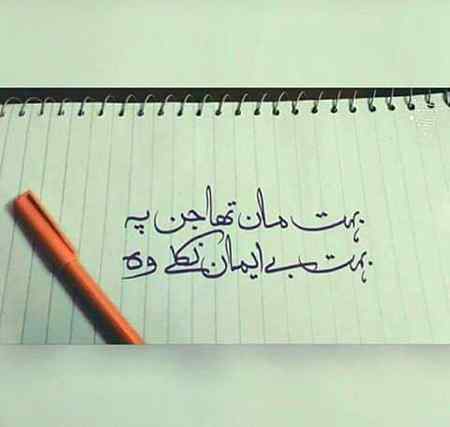 بہت مان تھا جن پہ
بہت بے ایمان نکلے وہ